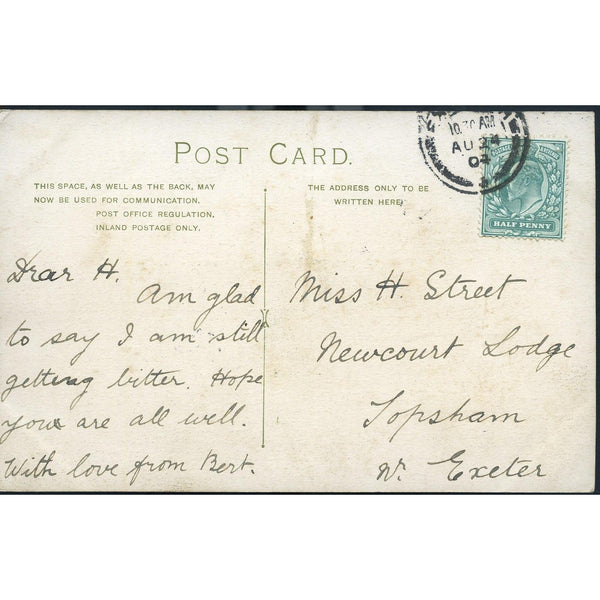 POST CARD.
THIS SPACE, AS WELL AS THE BACK, MAY
NOW BE USED FOR COMMUNICATION.
POST OFFICE REGULATION,
INLAND POSTAGE ONLY.
THE ADDRESS ONLY TO BE
WRITTEN HERE.
10.30 AM
AU 24
04
HALF PENNY
Dear H.
Am glad
to say I am still
getting bitter. Hope
you are all well.
With love from Bert.
Miss H. Street
Newcourt Lodge
Topsham
Nr. Exeter